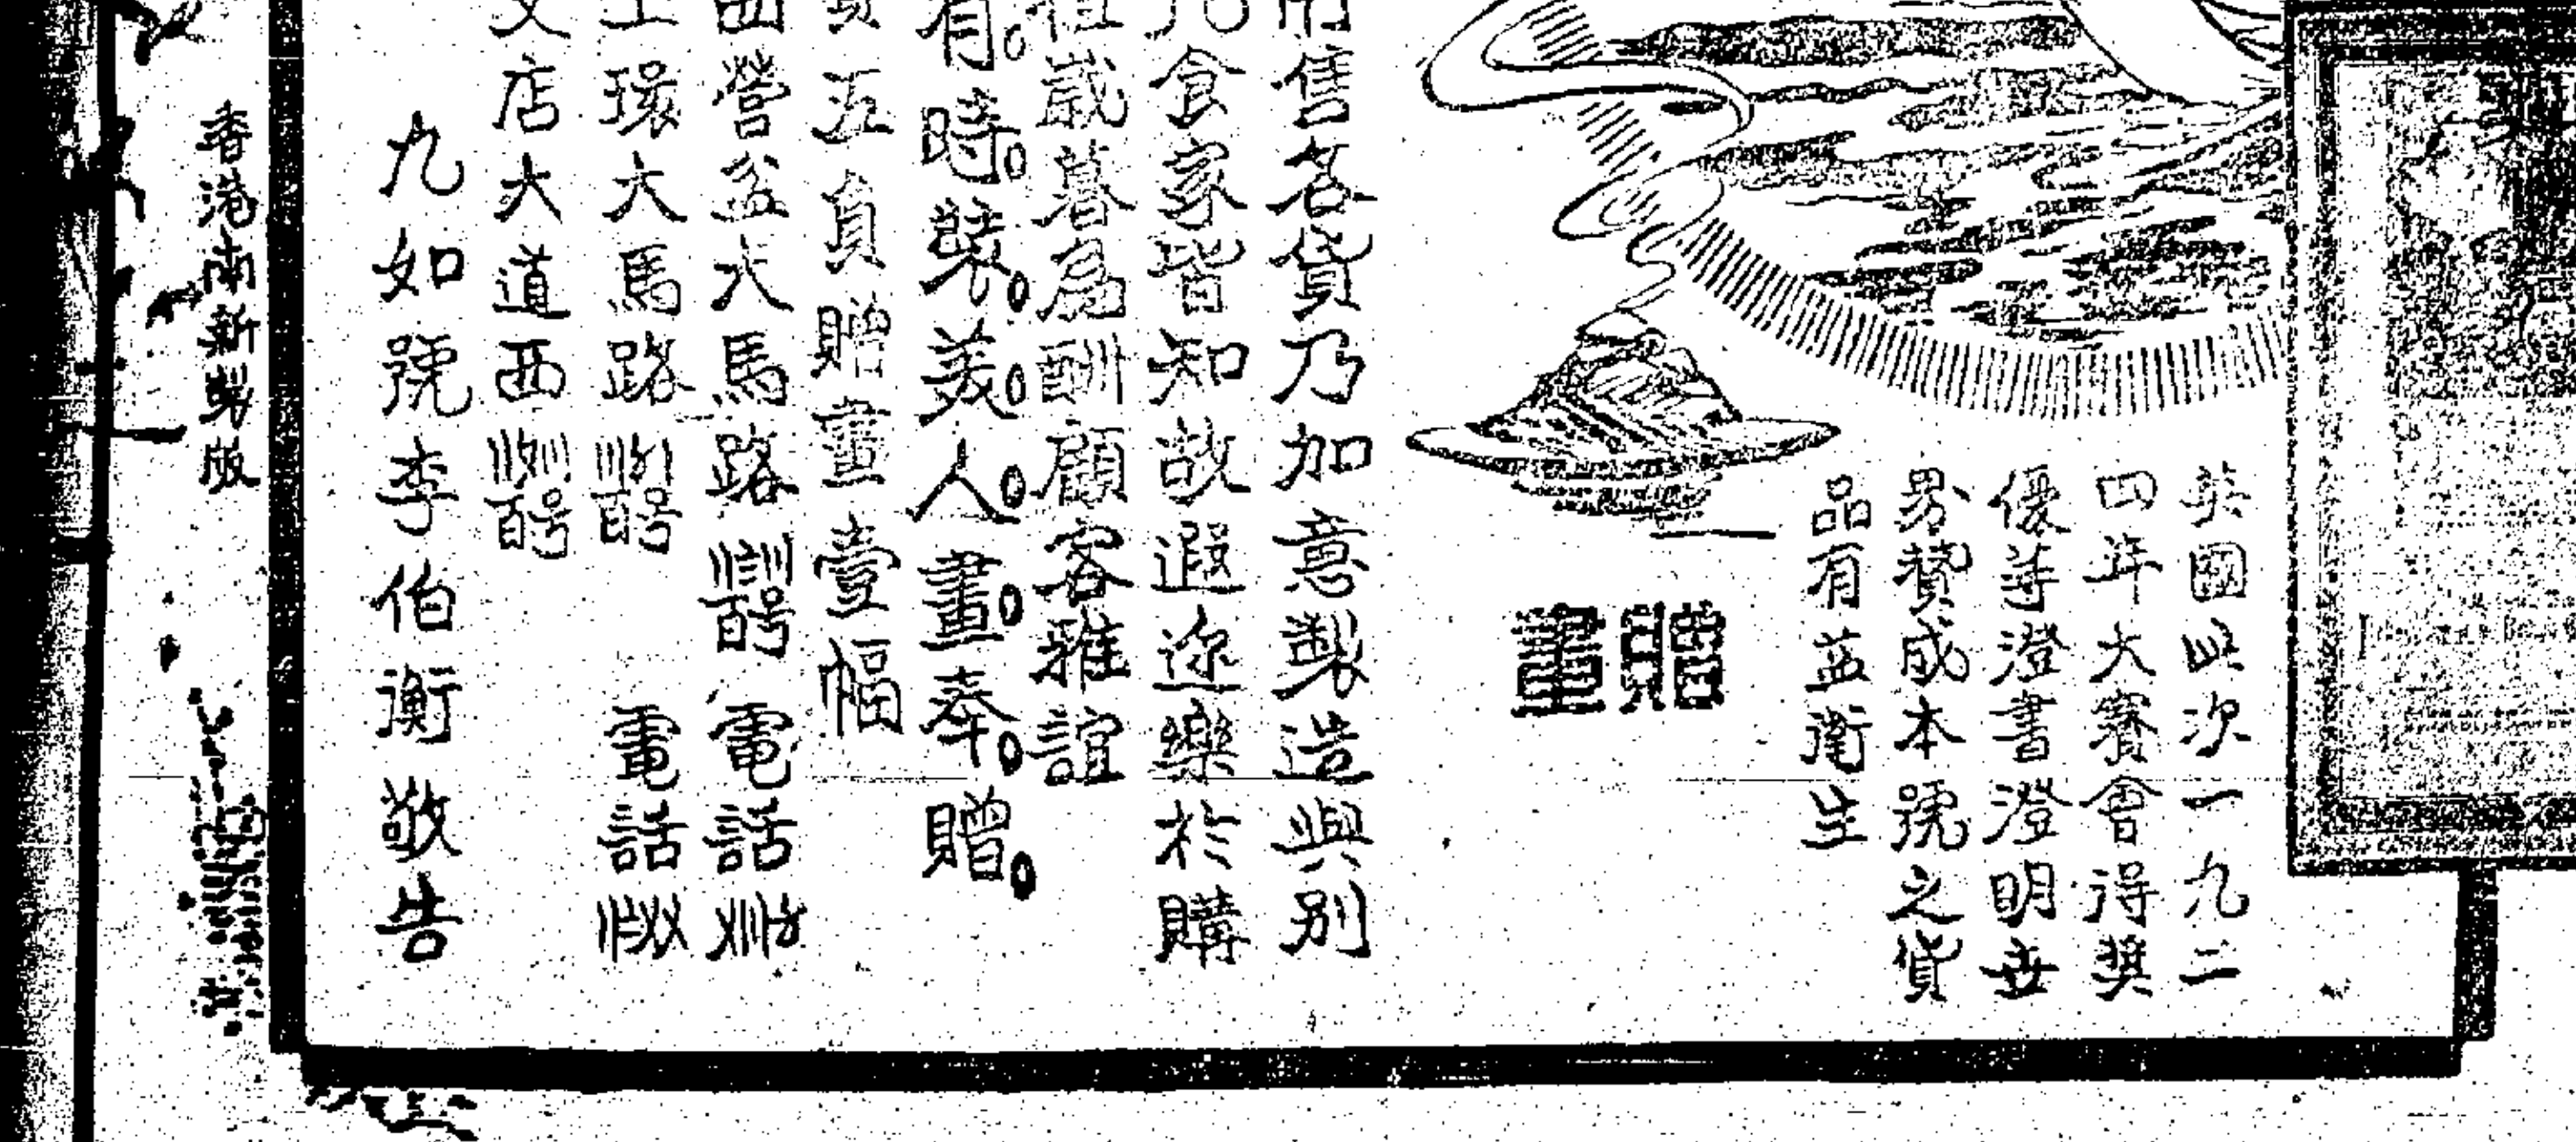 英國此次一九二
四年大賽會得奬
優等澄書澄明世
界贊成本號之貨
品有益衛生
贈畫
售各貨乃加意製造與別
食家皆知故遐迩樂於購
歲暮為酬顧客雅誼
有。時。裝。美。人。畫。奉。贈。
五員贈畫壹幅
西營盆大馬路 電話
上環大馬路 電話
文店大道西
九如號李伯衡敬告
香港南新製版